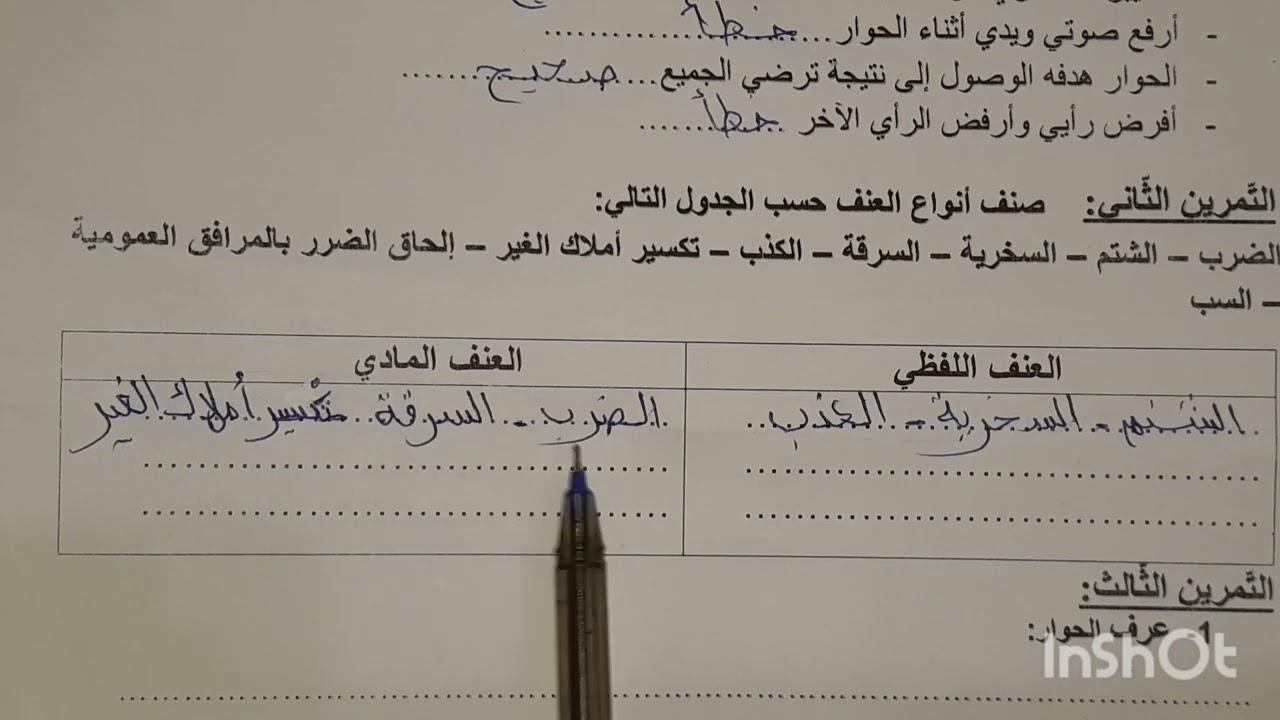 - أرفع صوتي ويدي أثناء الحوار...خطأ..............
- الحوار هدفه الوصول إلى نتيجة ترضي الجميع....صحيح.......
- أفرض رأيي وأرفض الرأي الآخر خطأ.......
التّمرين الثّاني: صنف أنواع العنف حسب الجدول التالي:
الضرب – الشتم – السخرية – السرقة – الكذب – تكسير أملاك الغير – إلحاق الضرر بالمرافق العمومية
– السب
العنف اللفظي العنف المادي
الشتم - السخرية - الكذب الضرب - السرقة - تكسير أملاك الغير
التّمرين الثّالث:
1- عرف الحوار:
InShOt